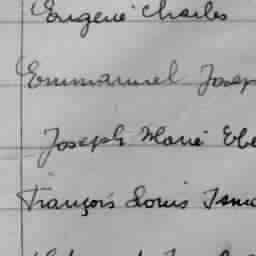 Eugène Charles
Emmanuel Josep
Joseph Marie Ebe
François Louis